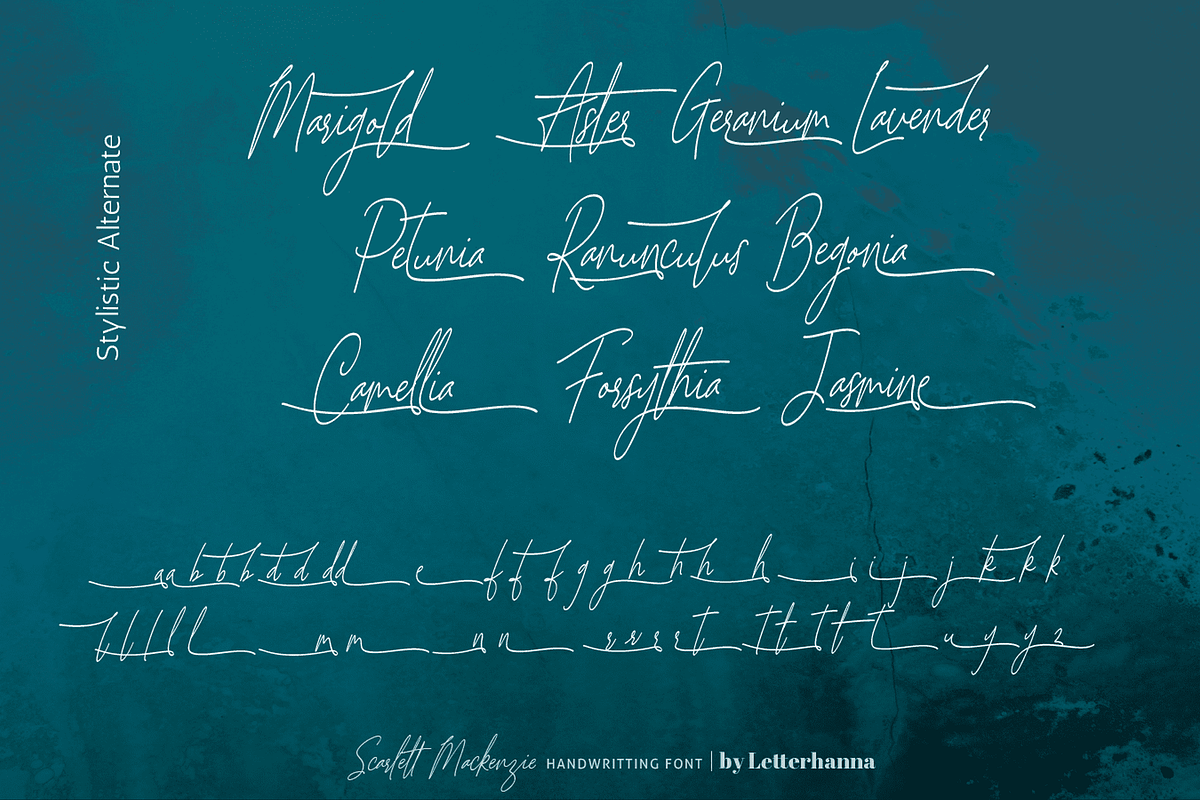 Stylistic Alternate
Marigold Aster Geranium Lavender
Petunia Ranunculus Begonia
Camellia Forsythia Jasmine
a a b b b d d d d e f f f g g h h h h i i j j k k k
t l l l l m m n n r r s s t t t t t t u y y z
Scarlett Mackenzie HANDWRITTING FONT | by Letterhanna